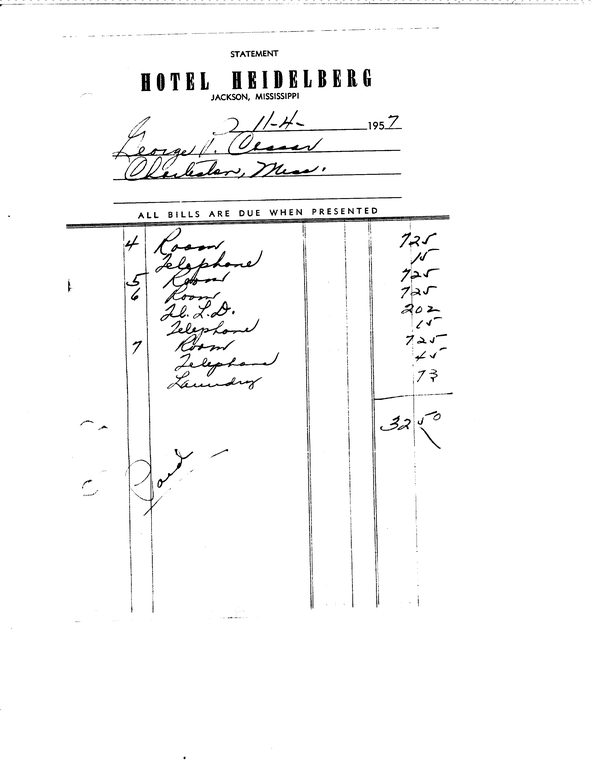 STATEMENT
HOTEL HEIDELBERG
JACKSON, MISSISSIPPI
11-4- 1957
George P.
Charleston, Miss.
ALL BILLS ARE DUE WHEN PRESENTED
4 Room 7 25
Telephone 15
5 Room 7 25
6 Room 7 25
L. D. 2 02
Telephone 15
7 Room 7 25
Telephone 45
Laundry 73
32 50
Paid